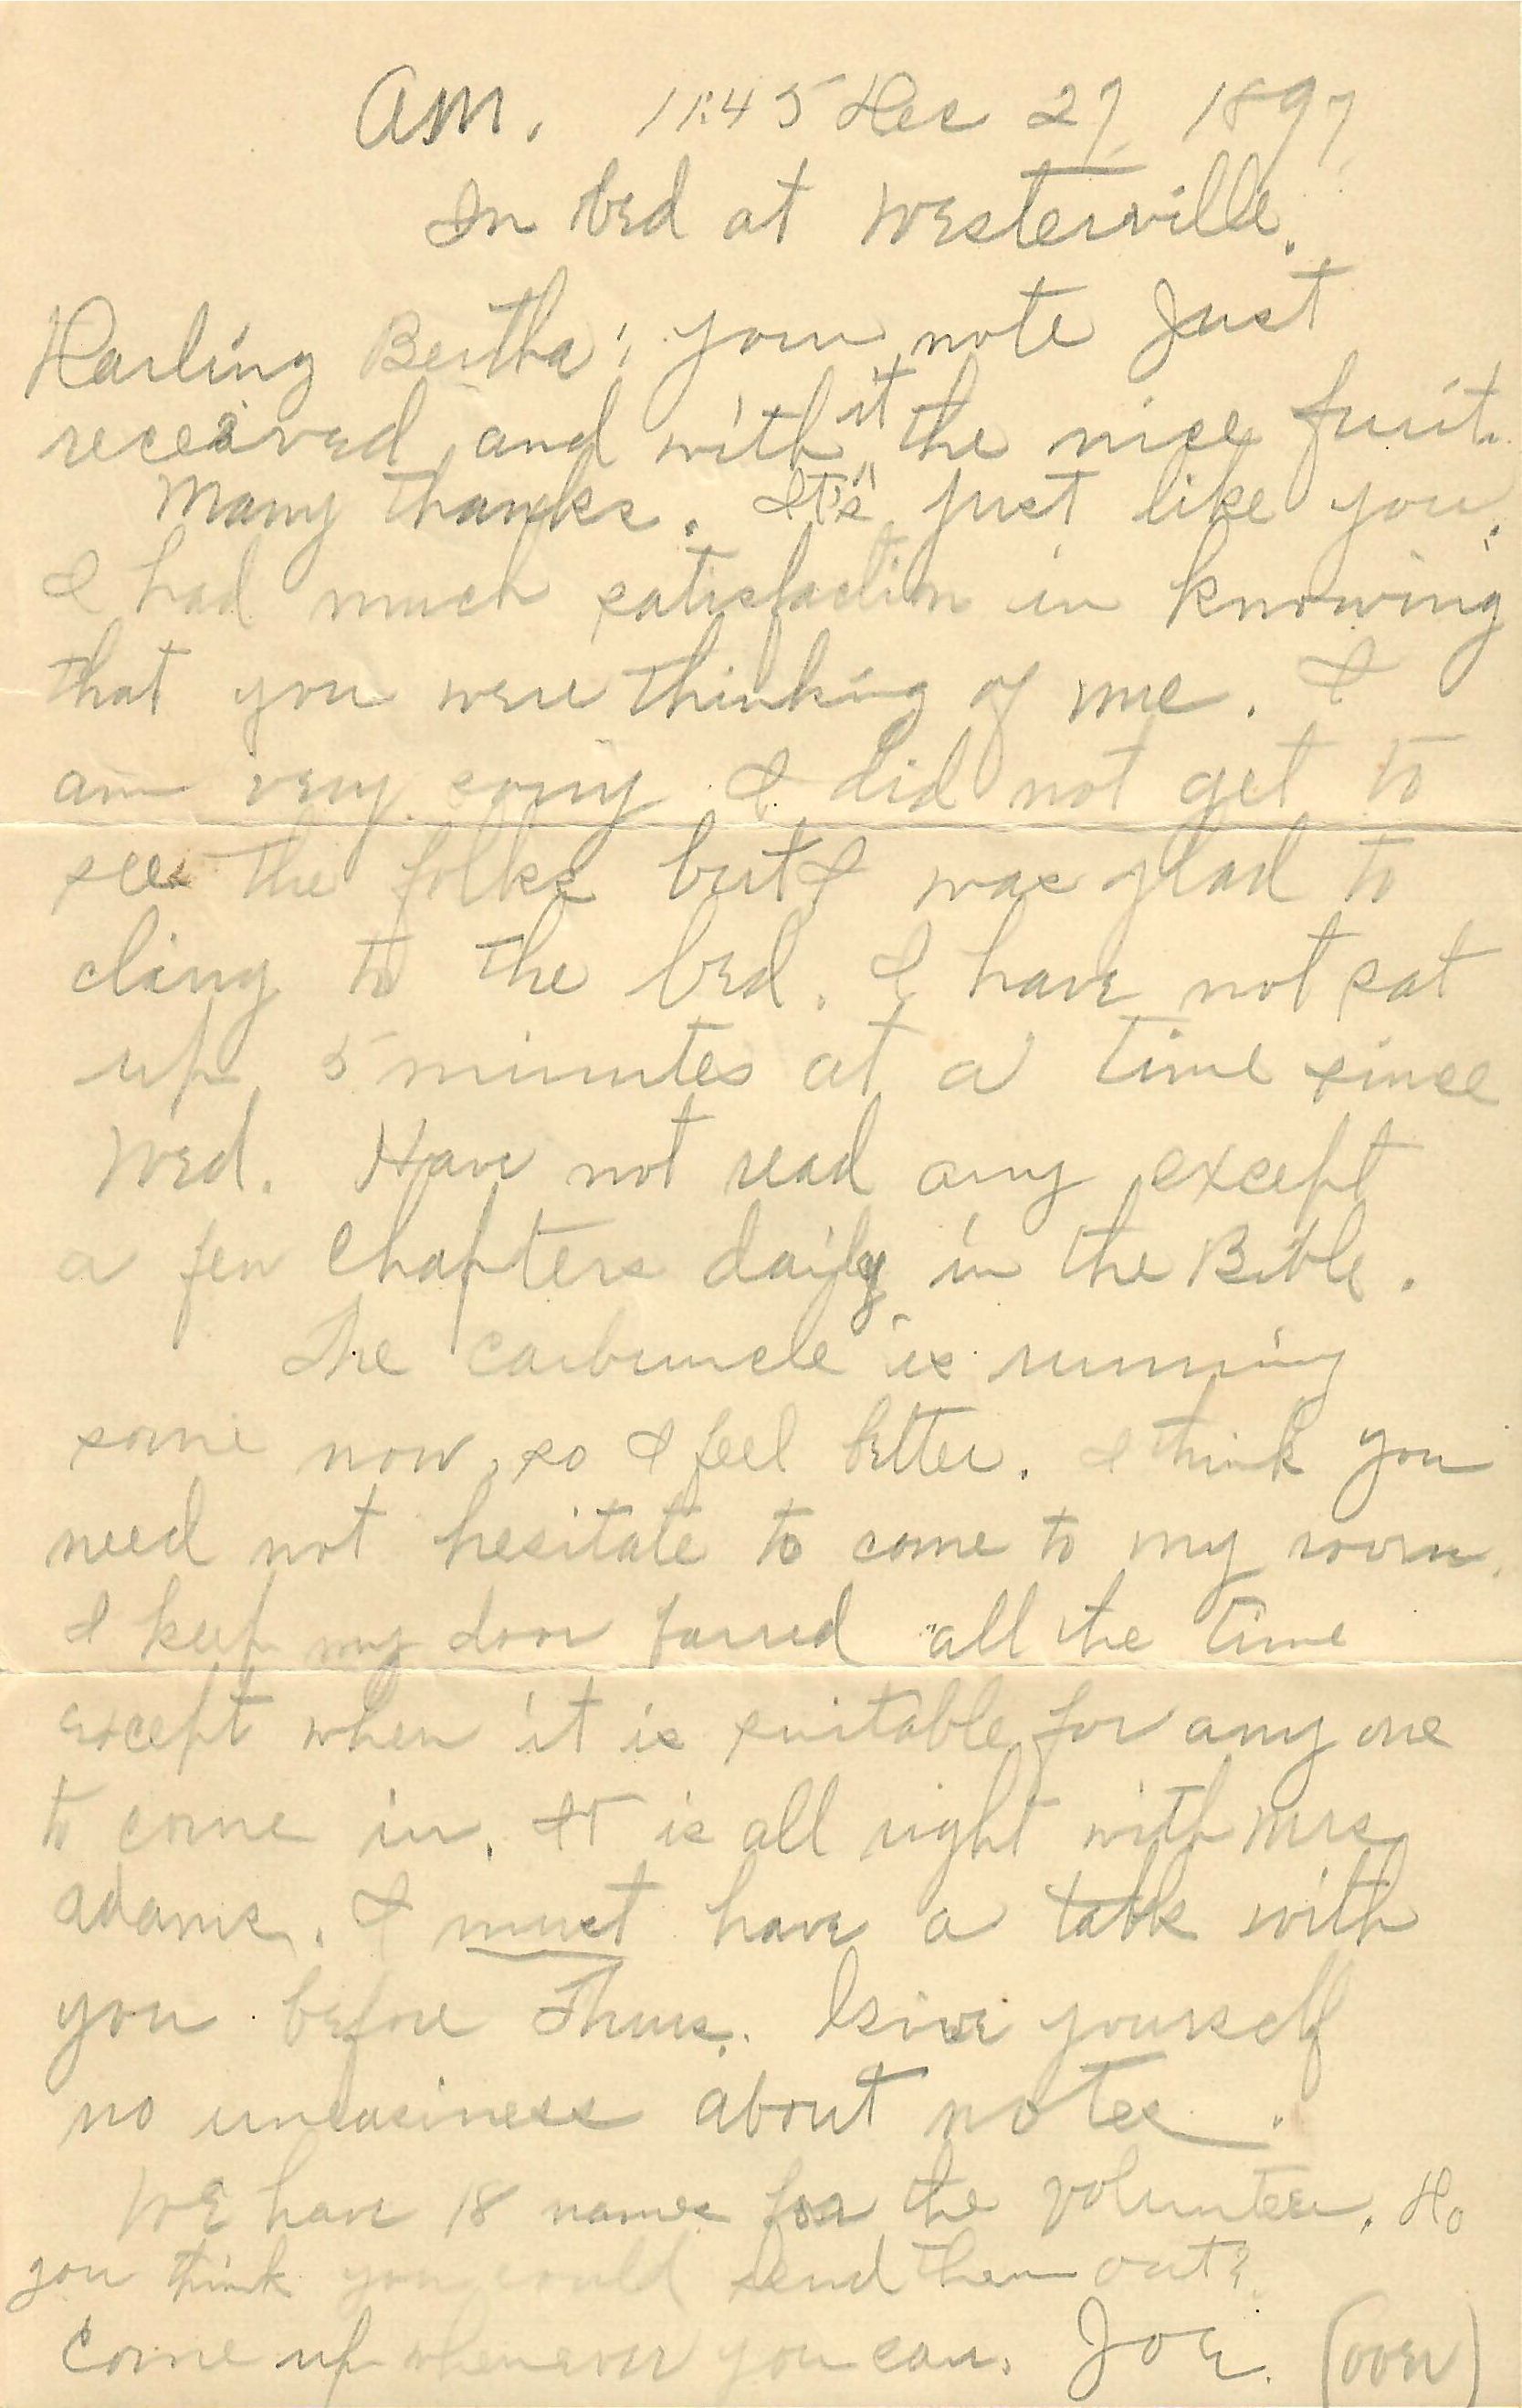 AM. 11:45 Dec 27, 1897,
In bed at Westerville.
Darling Bertha; your note Just
received, and with it the nice fruit.
Many thanks. It's just like you.
I had much satisfaction in knowing
that you were thinking of me. I
am very sorry I did not get to
see the folks but I was glad to
cling to the bed. I have not sat
up 5 minutes at a time since
Wed. Have not read any except
a few Chapters daily in the Bible.
The carbuncle is running
some now, so I feel better. I think you
need not hesitate to come to my room.
I keep my door barred all the time
except when it is suitable for any one
to come in. It is all right with Mrs
Adams. I must have a talk with
you before Thurs. Give yourself
no uneasiness about notes.
We have 18 names for the volunteer. Do
you think you could send them out?
Come up whenever you can. Joe. (over)